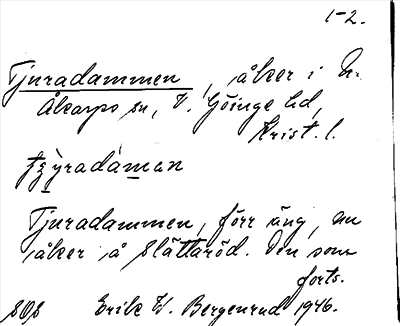 1-2.
Tjuradammen, åker i N.
Åkarps sn, V. Göinge hd,
Krist. l.
Tjuradammen, förr äng, nu
åker å Slättaröd. Den som
forts.
SOS Erik W. Bergenrud 1946.